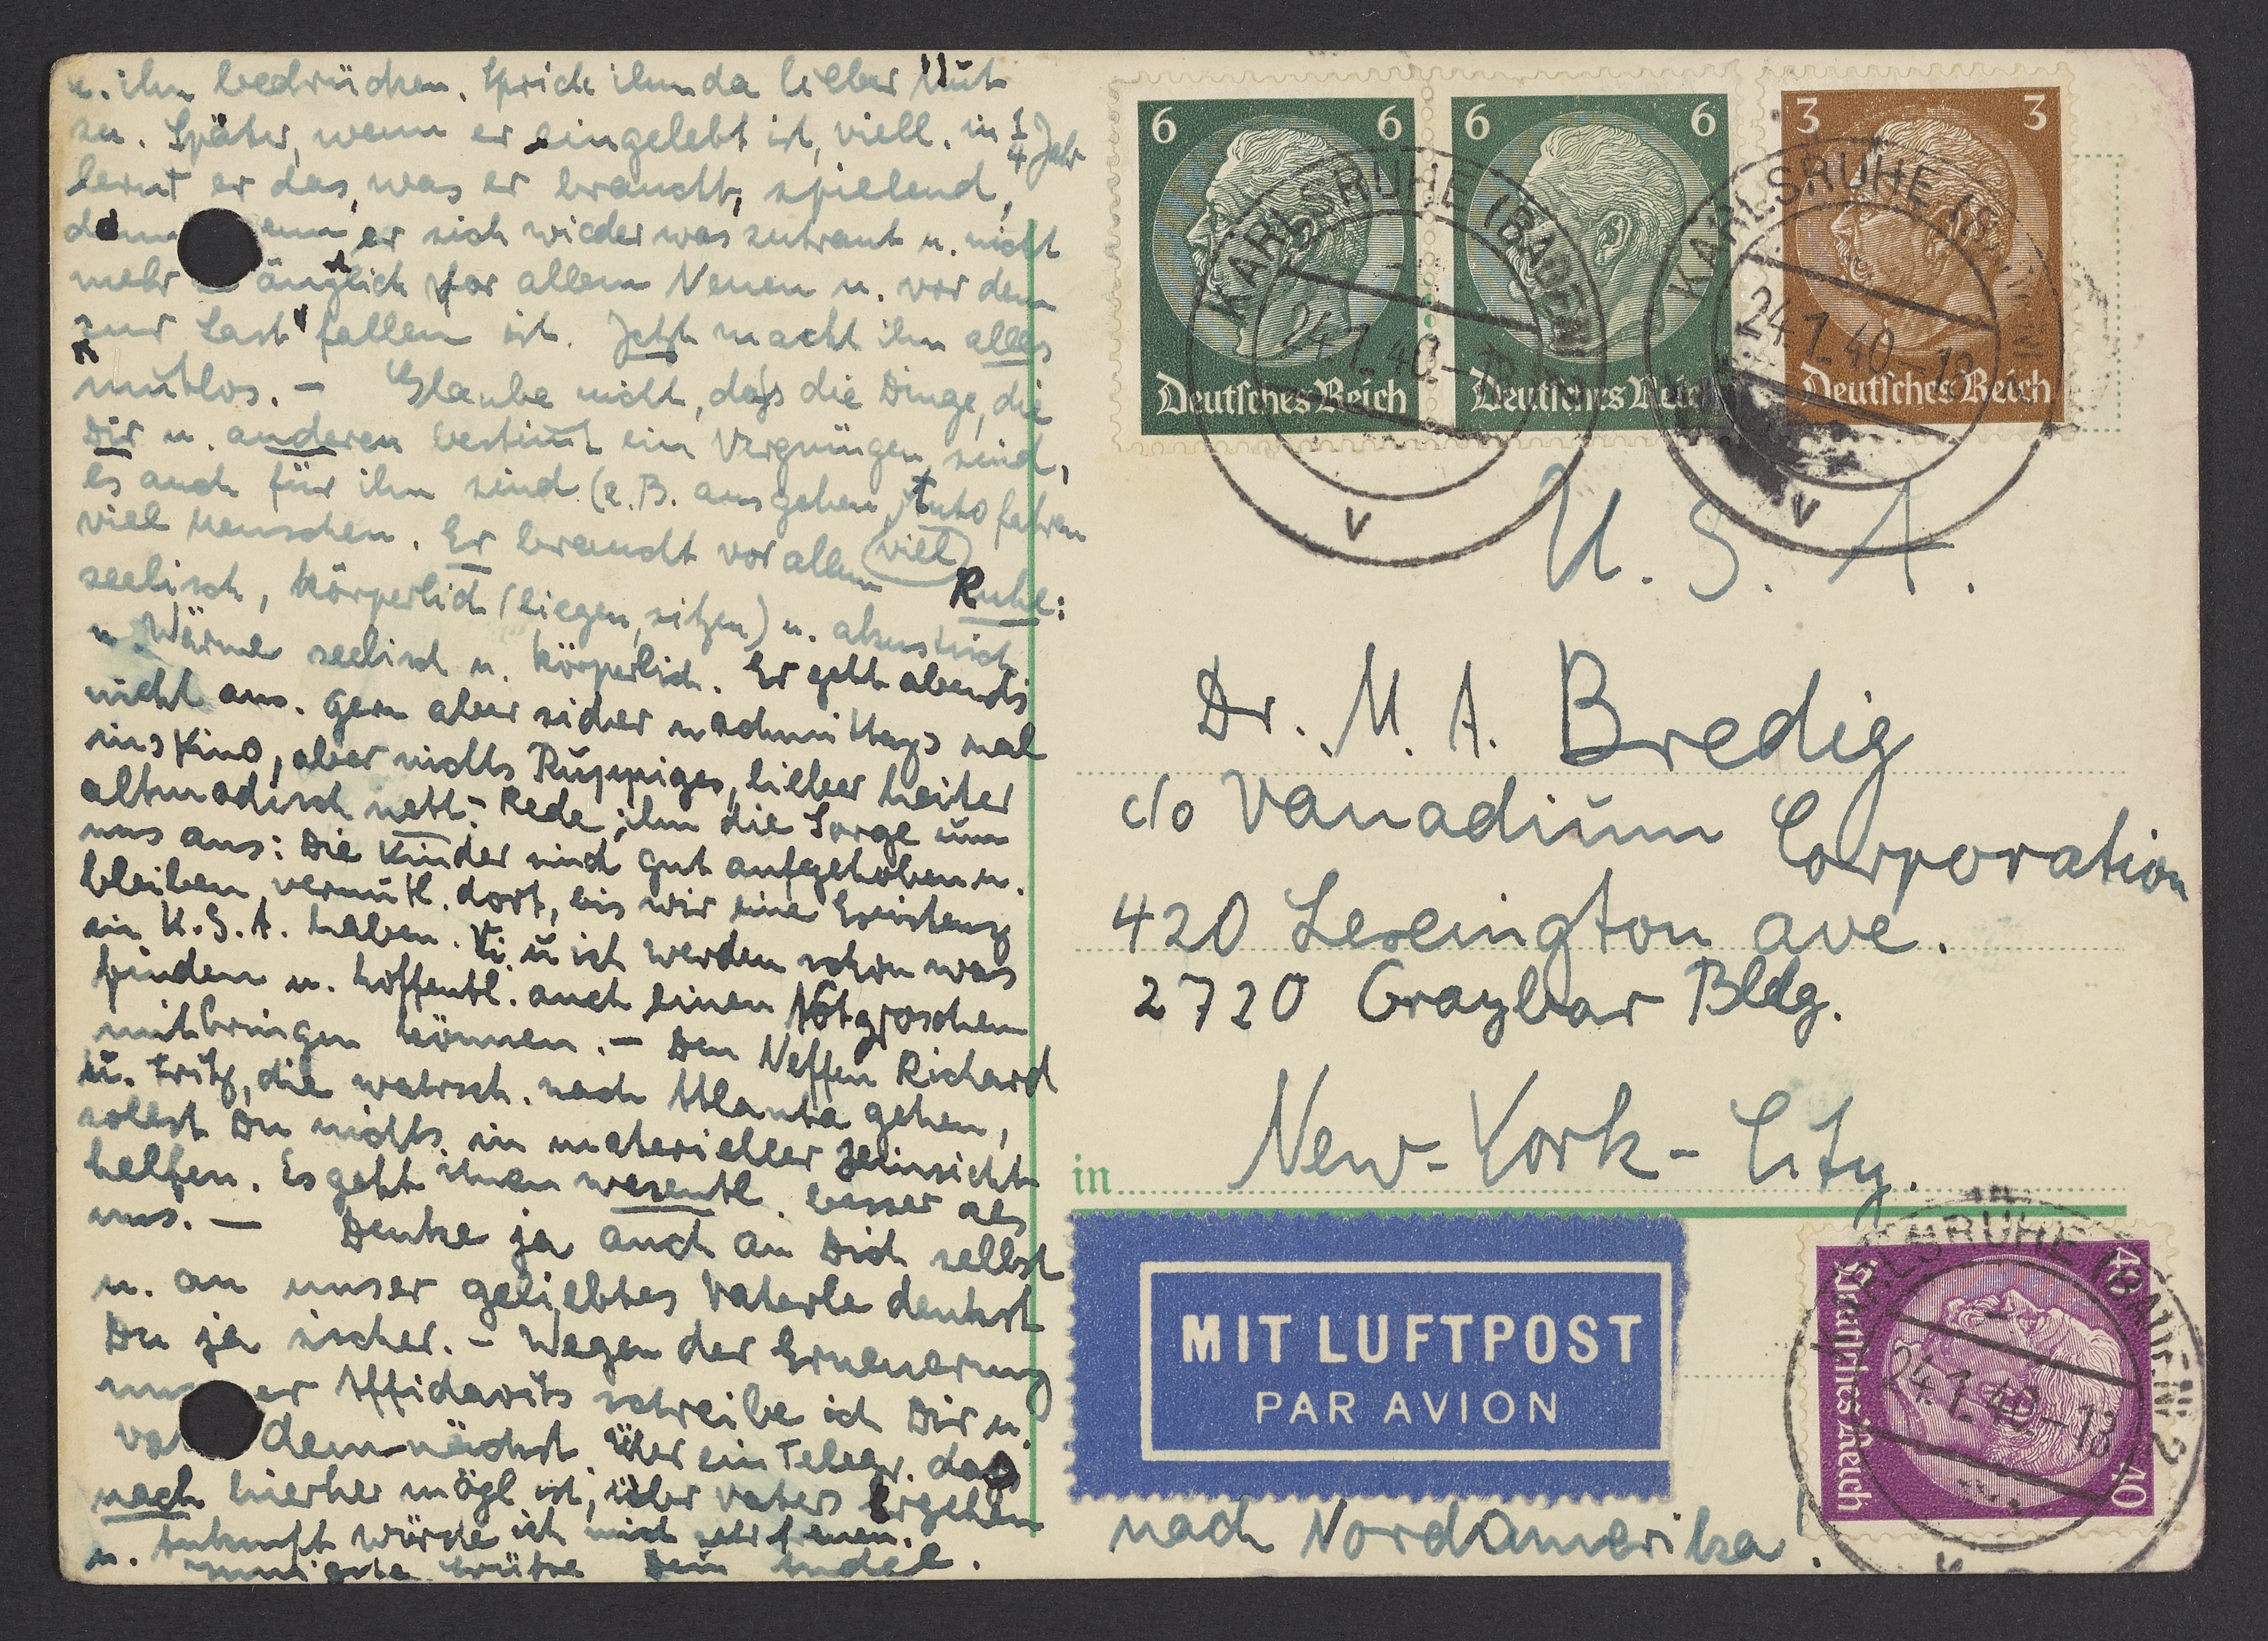 u. ihn bedrücken. Sprich ihm da lieber Mut
zu. Später, wenn er eingelebt ist, viell. in 1/4 Jahr
lernt er das, was er braucht, spielend,
denn er sich wieder was zutraut u. nicht
mehr ängstlich vor allem Neuen u. vor dem
"zur Last" fallen ist. Jetzt macht ihn alles
mutlos. – Glaube nicht, dass die Dinge, die
Dir u. anderen bestimmt ein Vergnügen sind,
es auch für ihn sind (z. B. ausgehen, Auto fahren
viel Menschen. Er braucht vor allem viel
Ruhe:
seelisch, körperlich (liegen, sitzen) u. akustisch
u. Wärme seelisch u. körperlich. Er geht abends
nicht aus. gern aber sicher nachmittags mal
ins Kino, aber nichts Ruppiges, lieber heiter
altmodisch nett. – Rede ihm die Sorge um
uns aus: Die Kinder sind gut aufgehoben u.
bleiben vermutl. dort, bis wir eine Existenz
in U.S.A. haben. Vi. u ich werden schon was
finden u. hoffentl. auch einen Notgroschen
mitbringen können. – Den Neffen Richard
u. Fritz, die wahrsch. nach Atlanta gehen,
sollst Du nichts in materieller Hinsicht
helfen. Es geht ihnen wesentl. besser als
uns. – Denke ja auch an Dich selbst
u. an unser geliebtes Vaterle denkst
Du ja sicher. – Wegen der Erneuerung
uns er Affidavits schreibe ich Dir u.
Vat demnächst. Über ein Telegr. das
nach hierher mögl. ist, über Vaters Ergehen
u. Ankunft würde ich mich sehr freuen.
u. innigste Grüße Dein
6 6
6 6
3 3
Deutsches Reich
Deutsches Reich
Deutsches Reich
KARLSRUHE (BADEN)
24.1.40.–13
V
KARLSRUHE (BADEN)
24.1.40–13
V
U. S. A.
Dr. M. A. Bredig
c/o Vanadium Corporation
420 Lexington ave.
2720 Graybar Bldg.
in New-York-City.
MIT LUFTPOST
PAR AVION
nach Nordamerika!
40 40
Deutsches Reich
KARLSRUHE (BADEN) 2
24.1.40–13